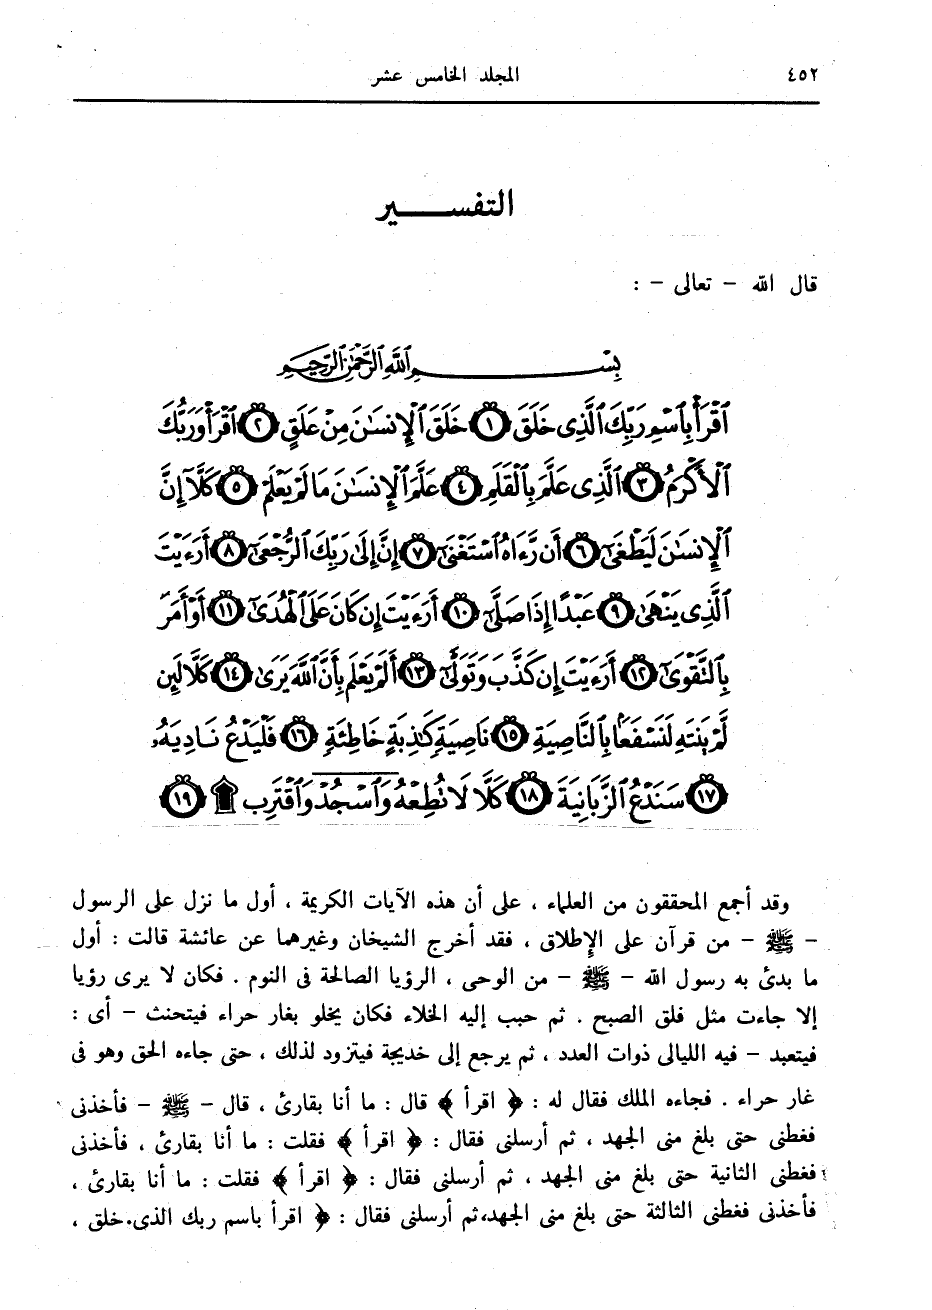 ٤٥٢ المجلد الخامس عشر
التفســـــير
قال الله – تعالى – :
بِسْــــــــمِ ٱللَّهِ ٱلرَّحْمَٰنِ ٱلرَّحِيمِ
ٱقْرَأْ بِٱسْمِ رَبِّكَ ٱلَّذِى خَلَقَ ﴿١﴾ خَلَقَ ٱلْإِنسَٰنَ مِنْ عَلَقٍ ﴿٢﴾ ٱقْرَأْ وَرَبُّكَ
ٱلْأَكْرَمُ ﴿٣﴾ ٱلَّذِى عَلَّمَ بِٱلْقَلَمِ ﴿٤﴾ عَلَّمَ ٱلْإِنسَٰنَ مَا لَمْ يَعْلَمْ ﴿٥﴾ كَلَّآ إِنَّ
ٱلْإِنسَٰنَ لَيَطْغَىٰٓ ﴿٦﴾ أَن رَّءَاهُ ٱسْتَغْنَىٰٓ ﴿٧﴾ إِنَّ إِلَىٰ رَبِّكَ ٱلرُّجْعَىٰٓ ﴿٨﴾ أَرَءَيْتَ
ٱلَّذِى يَنْهَىٰ ﴿٩﴾ عَبْدًا إِذَا صَلَّىٰٓ ﴿١٠﴾ أَرَءَيْتَ إِن كَانَ عَلَى ٱلْهُدَىٰٓ ﴿١١﴾ أَوْ أَمَرَ
بِٱلتَّقْوَىٰٓ ﴿١٢﴾ أَرَءَيْتَ إِن كَذَّبَ وَتَوَلَّىٰٓ ﴿١٣﴾ أَلَمْ يَعْلَم بِأَنَّ ٱللَّهَ يَرَىٰ ﴿١٤﴾ كَلَّا لَئِن
لَّمْ يَنتَهِ لَنَسْفَعًۢا بِٱلنَّاصِيَةِ ﴿١٥﴾ نَاصِيَةٍ كَٰذِبَةٍ خَاطِئَةٍ ﴿١٦﴾ فَلْيَدْعُ نَادِيَهُۥ
﴿١٧﴾ سَنَدْعُ ٱلزَّبَانِيَةَ ﴿١٨﴾ كَلَّا لَا تُطِعْهُ وَٱسْجُدْ وَٱقْتَرِب ۩ ﴿١٩﴾
وقد أجمع المحققون من العلماء ، على أن هذه الآيات الكريمة ، أول ما نزل على الرسول
– ﷺ – من قرآن على الإطلاق ، فقد أخرج الشيخان وغيرهما عن عائشة قالت : أول
ما بدئ به رسول الله – ﷺ – من الوحى ، الرؤيا الصالحة فى النوم . فكان لا يرى رؤيا
إلا جاءت مثل فلق الصبح . ثم حبب إليه الخلاء فكان يخلو بغار حراء فيتحنث – أى :
فيتعبد – فيه الليالى ذوات العدد ، ثم يرجع إلى خديجة فيتزود لذلك ، حتى جاءه الحق وهو فى
غار حراء . فجاءه الملك فقال له : ﴿ اقرأ ﴾ قال : ما أنا بقارئ ، قال – ﷺ – فأخذنى
فغطنى حتى بلغ منى الجهد ، ثم أرسلنى فقال : ﴿ اقرأ ﴾ فقلت : ما أنا بقارئ ، فأخذنى
فغطنى الثانية حتى بلغ منى الجهد ، ثم أرسلنى فقال : ﴿ اقرأ ﴾ فقلت : ما أنا بقارئ ،
فأخذنى فغطنى الثالثة حتى بلغ منى الجهد،ثم أرسلنى فقال : ﴿ اقرأ باسم ربك الذى.خلق ،